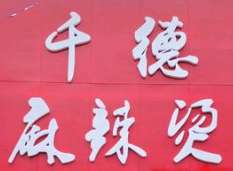 千德烫
麻辣烫